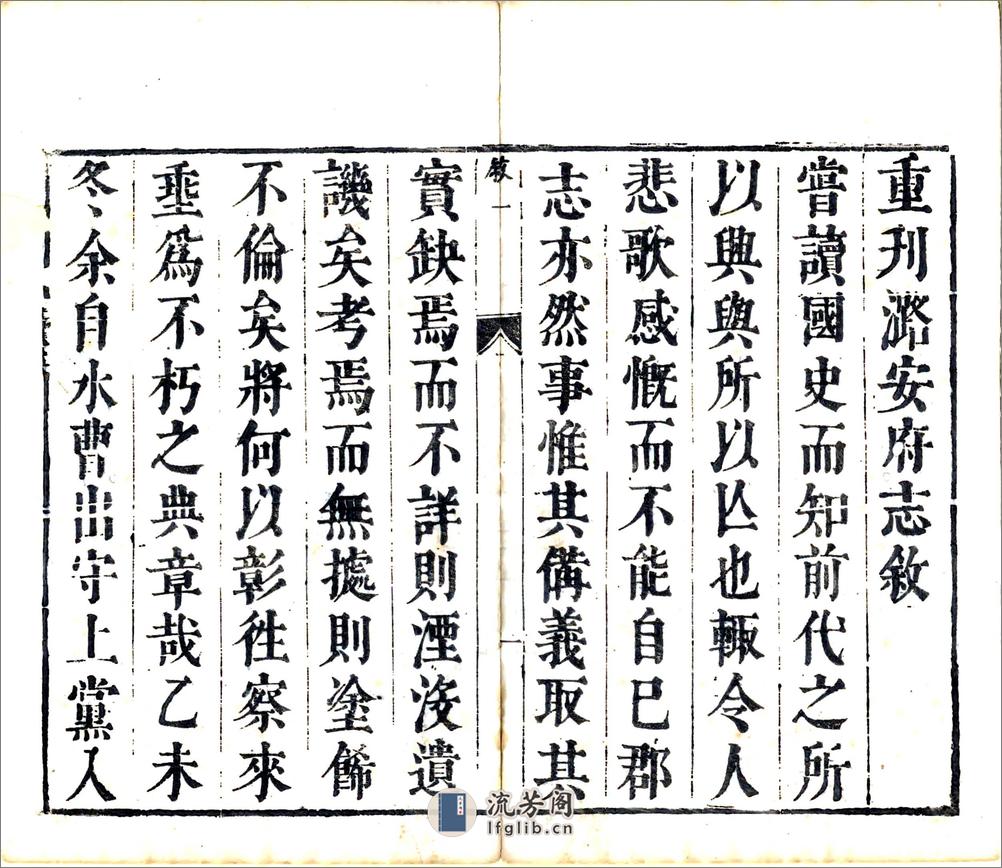 重刊潞安府志敘
嘗讀國史而知前代之所
以興與所以亾也輙令人
悲歌感慨而不能自已郡
志亦然事惟其備義取其
敘一
實缺焉而不詳則湮沒遺
譏矣考焉而無據則塗餙
不倫矣將何以彰徃察來
垂爲不朽之典章哉乙未
冬余自水曹出守上黨入
流芳阁
lfglib.cn